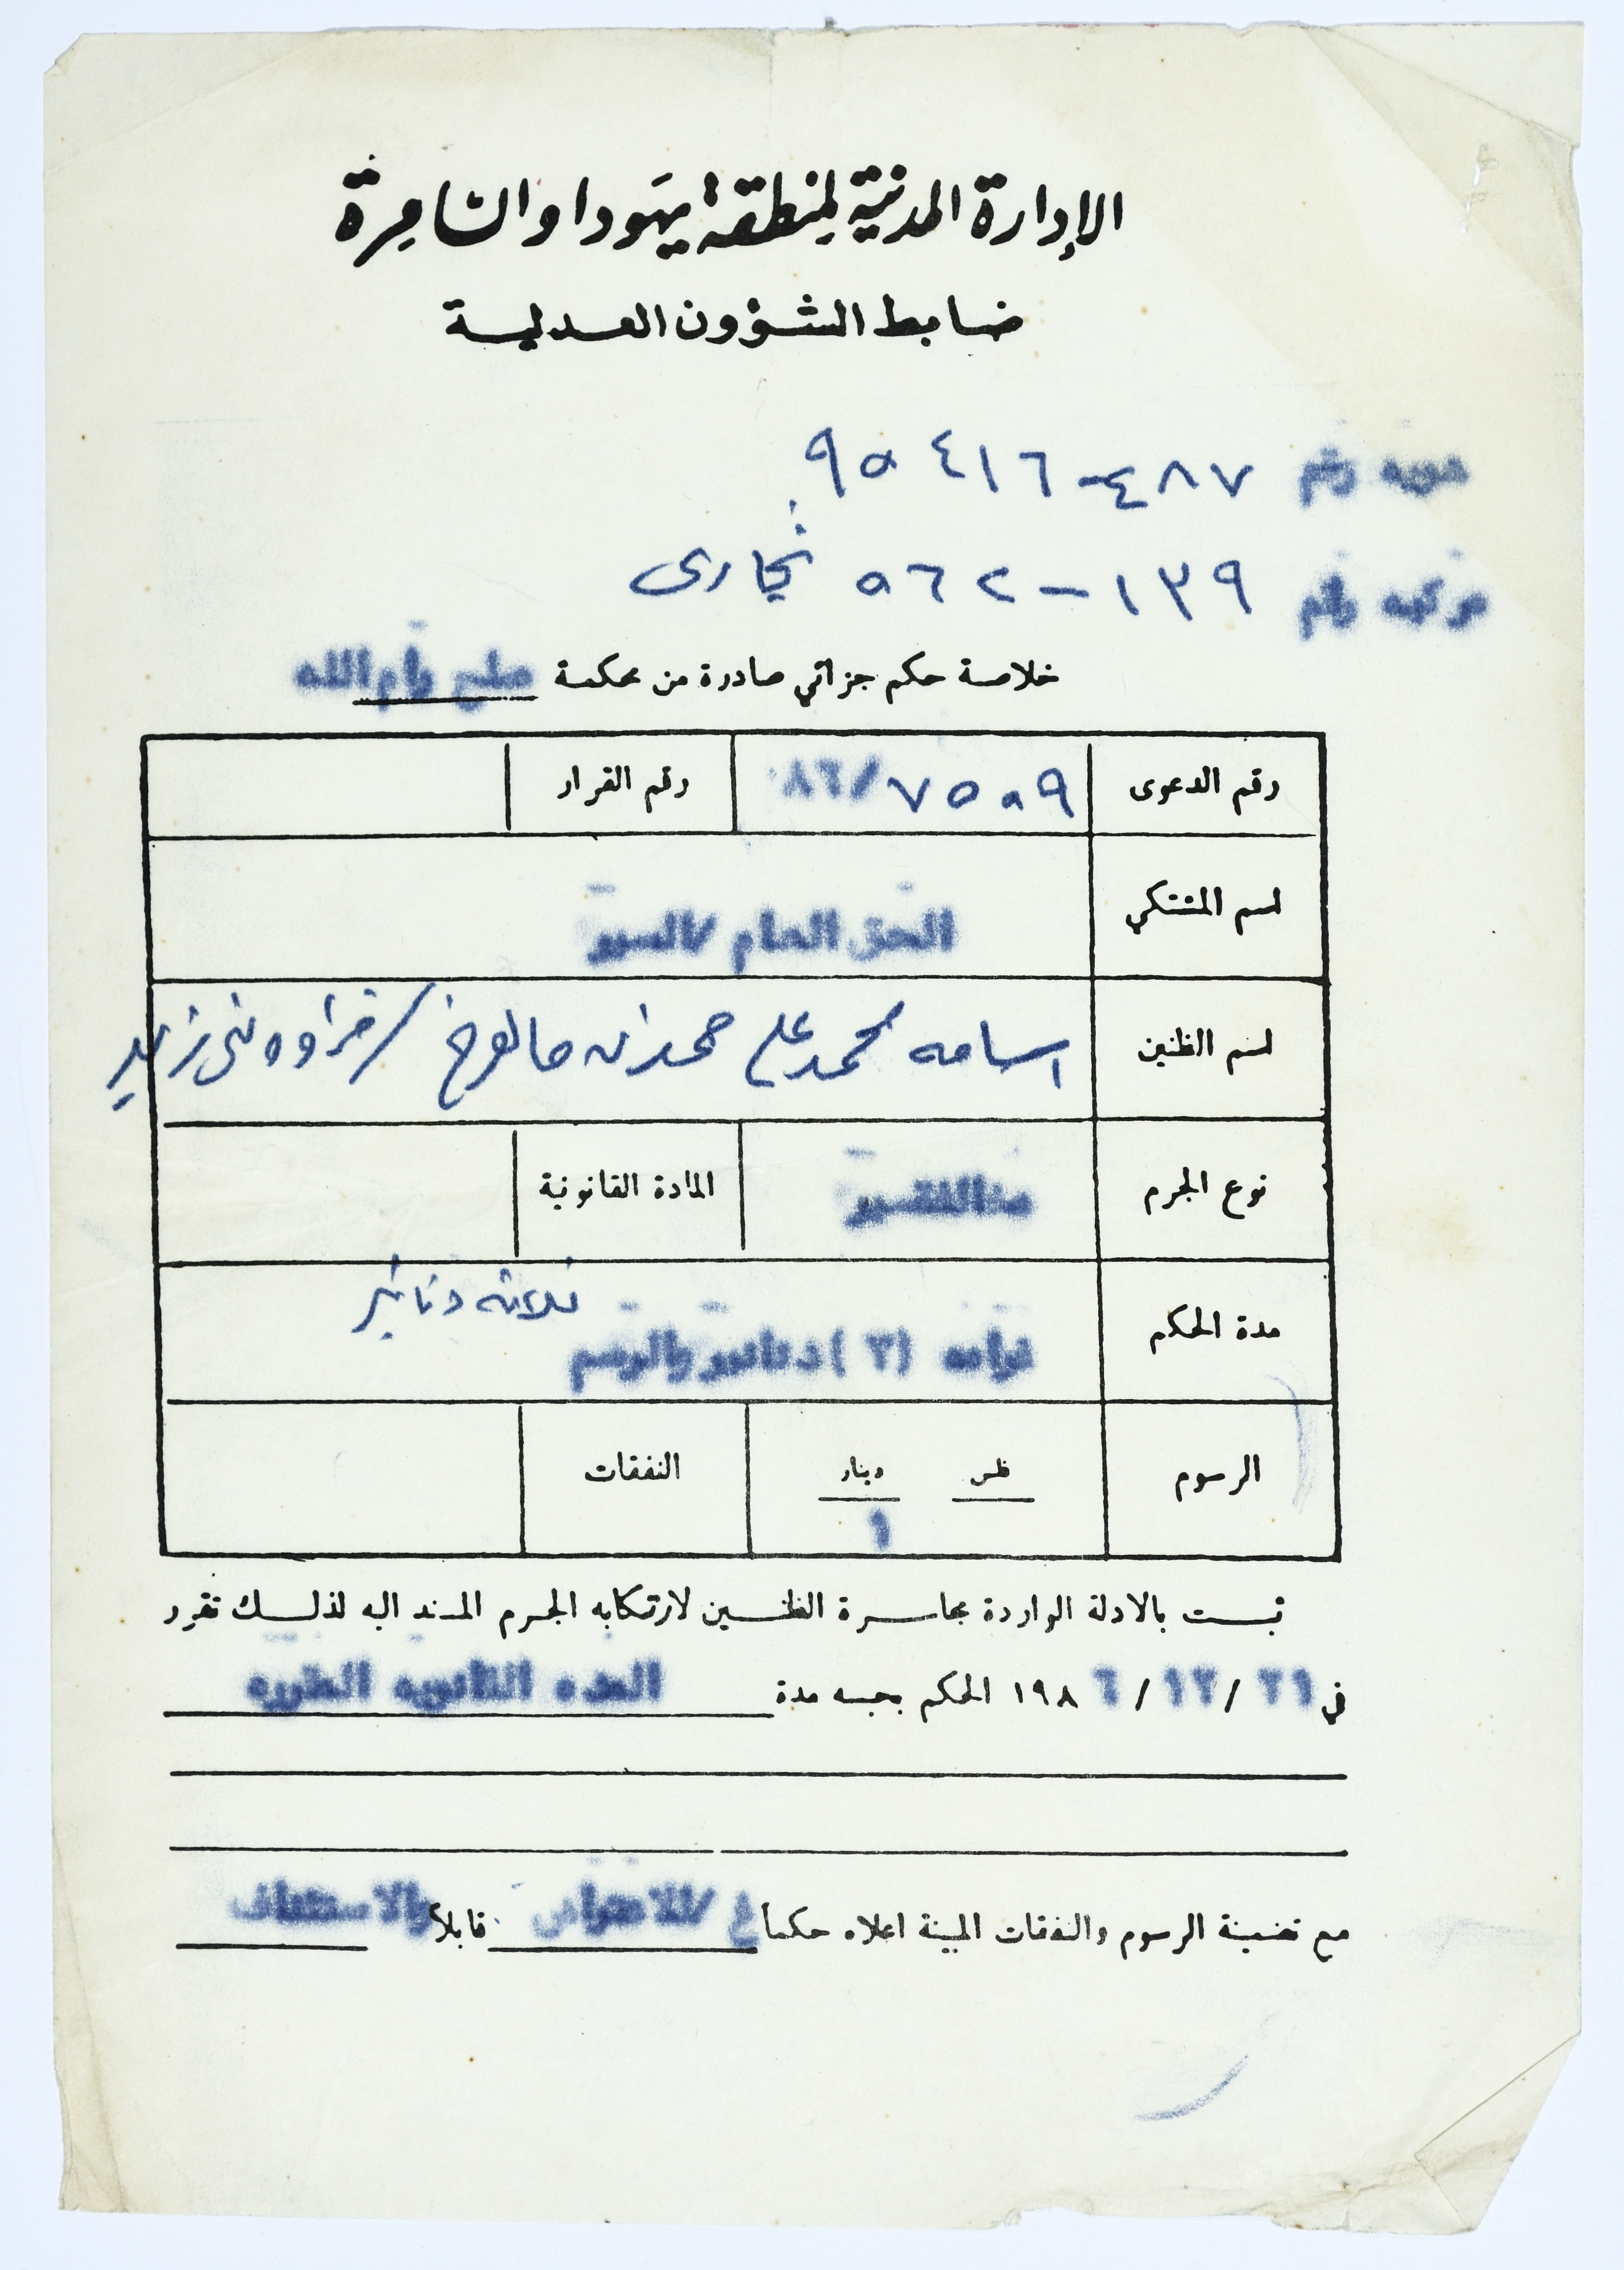 الإدارة المدنية لمنطقة يهودا والسامرة
ضابط الشؤون العدلية
هويه رقم ٤٨٧-٩٥٤١٦
مركبه رقم ١٣٩-٥٦٢ تجارى
خلاصة حكم جزائي صادرة من محكمة صلح رام الله
رقم الدعوى ٧٥٥٩/٨٦ رقم القرار
اسم المشتكي الحق العام / السير
اسم الظنين اسامه محمد علي حمدان / قراوه بني زيد
نوع الجرم المادة القانونية
ثلاثه دنانير
مدة الحكم غرامه (٣) دنانير والرسم
الرسوم فلس دينار النفقات
١
ثبت بالادلة الواردة مجاسرة الظنين لارتكابه الجرم المسند اليه لذلك تقرر
في ٢١/١٢/١٩٨٦ الحكم بحبسه مدة المده القانونيه المقرره
مع تضمينة الرسوم والنفقات المبينة اعلاه حكماً غ / للاعتراض قابلاً والاستئناف